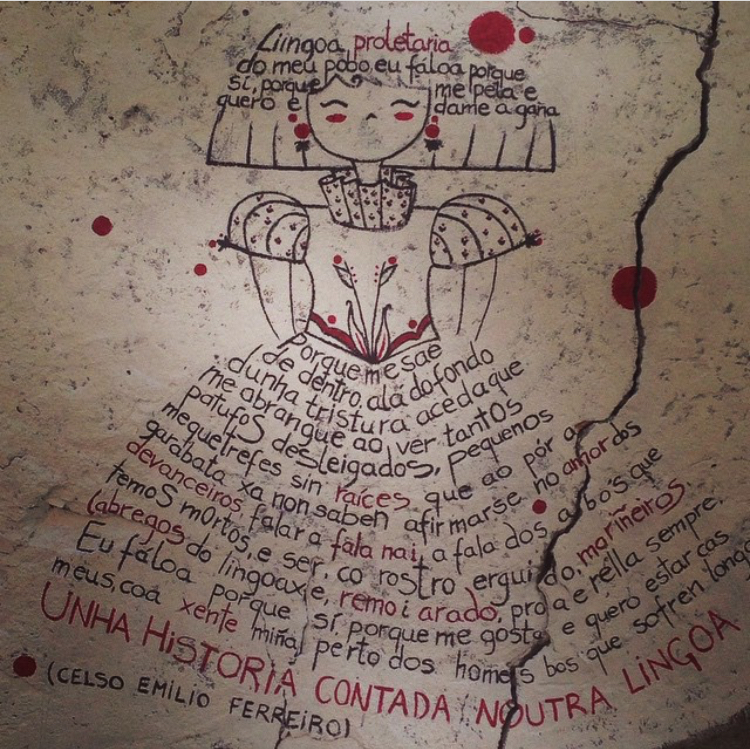 Liingoa proletaria
do meu pobo, eu fáloa porque
sí, porque me peta e
quero e dame a gana
Porque me sae
de dentro, alá do fondo
dunha tristura aceda que
me abrangue ao ver tantos
patufos desleigados, pequenos
mequetrefes sin raíces que ao pór a
garabata xa non saben afirmarse no amor dos
devanceiros, falar a fala nai, a fala dos abós que
temos mortos, e ser, co rostro erguido, mariñeiros,
labregos do lingoaxe, remo i arado, proa e rella sempre.
Eu fáloa porque sí, porque me gosta e quero estar cas
meus, coa xente miña, perto dos homes bos que sofren longo
UNHA HISTORIA CONTADA NOUTRA LINGOA
(CELSO EMILIO FERREIRO)